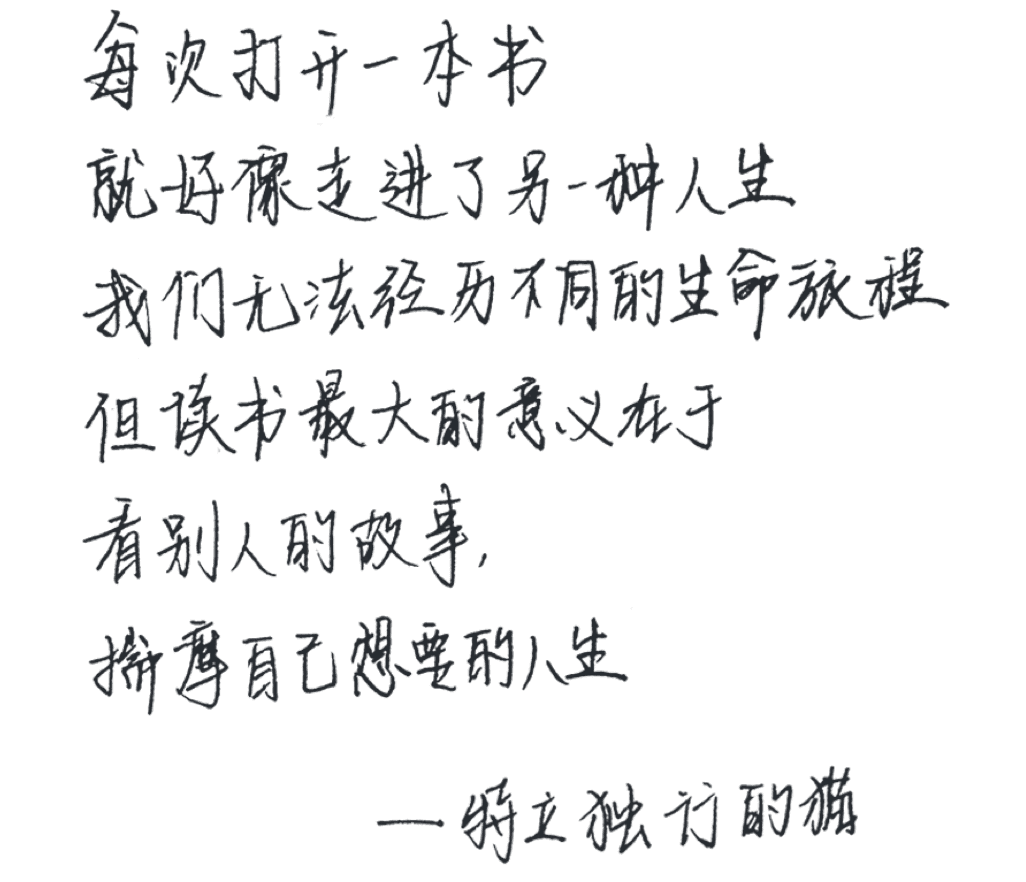 每次打开一本书
就好像走进了另一种人生
我们无法经历不同的生命旅程
但读书最大的意义在于
看别人的故事,
揣摩自己想要的人生
— 特立独行的猫